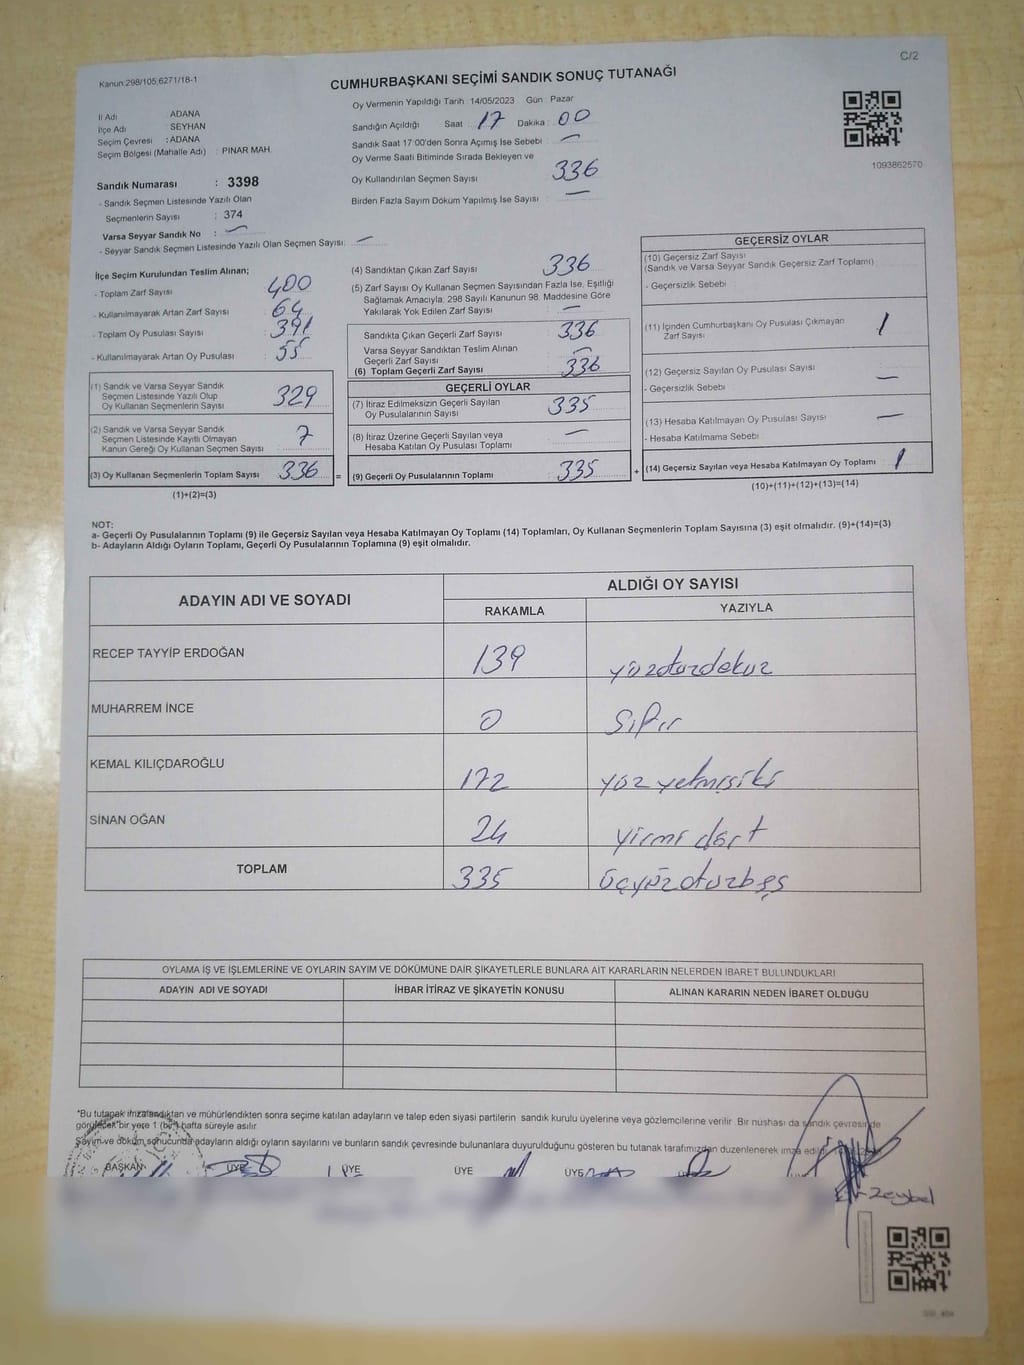 C/2
Kanun:298/105,6271/18-1
CUMHURBAŞKANI SEÇİMİ SANDIK SONUÇ TUTANAĞI
İl Adı : ADANA
İlçe Adı : SEYHAN
Seçim Çevresi : ADANA
Seçim Bölgesi (Mahalle Adı) : PINAR MAH.
Sandık Numarası : 3398
- Sandık Seçmen Listesinde Yazılı Olan
Seçmenlerin Sayısı : 374
Varsa Seyyar Sandık No : —
- Seyyar Sandık Seçmen Listesinde Yazılı Olan Seçmen Sayısı: —
Oy Vermenin Yapıldığı Tarih 14/05/2023 Gün Pazar
Sandığın Açıldığı Saat : 17 Dakika : 00
Sandık Saat 17:00'den Sonra Açımış İse Sebebi : —
Oy Verme Saati Bitiminde Sırada Bekleyen ve
Oy Kullandırılan Seçmen Sayısı : 336
Birden Fazla Sayım Döküm Yapılmış İse Sayısı : —
1093862570
İlçe Seçim Kurulundan Teslim Alınan;
- Toplam Zarf Sayısı : 400
- Kullanılmayarak Artan Zarf Sayısı : 64
- Toplam Oy Pusulası Sayısı : 391
- Kullanılmayarak Artan Oy Pusulası : 55
(1) Sandık ve Varsa Seyyar Sandık
Seçmen Listesinde Yazılı Olup
Oy Kullanan Seçmenlerin Sayısı : 329
(2) Sandık ve Varsa Seyyar Sandık
Seçmen Listesinde Kayıtlı Olmayan
Kanun Gereği Oy Kullanan Seçmen Sayısı : 7
(3) Oy Kullanan Seçmenlerin Toplam Sayısı : 336 =
(1)+(2)=(3)
(4) Sandıktan Çıkan Zarf Sayısı : 336
(5) Zarf Sayısı Oy Kullanan Seçmen Sayısından Fazla İse, Eşitliği
Sağlamak Amacıyla; 298 Sayılı Kanunun 98. Maddesine Göre
Yakılarak Yok Edilen Zarf Sayısı : —
Sandıkta Çıkan Geçerli Zarf Sayısı : 336
Varsa Seyyar Sandıktan Teslim Alınan
Geçerli Zarf Sayısı : —
(6) Toplam Geçerli Zarf Sayısı : 336
GEÇERLİ OYLAR
(7) İtiraz Edilmeksizin Geçerli Sayılan
Oy Pusulalarının Sayısı : 335
(8) İtiraz Üzerine Geçerli Sayılan veya
Hesaba Katılan Oy Pusulası Toplamı : —
(9) Geçerli Oy Pusulalarının Toplamı : 335 +
GEÇERSİZ OYLAR
(10) Geçersiz Zarf Sayısı
(Sandık ve Varsa Seyyar Sandık Geçersiz Zarf Toplamı) :
- Geçersizlik Sebebi :
(11) İçinden Cumhurbaşkanı Oy Pusulası Çıkmayan
Zarf Sayısı : 1
(12) Geçersiz Sayılan Oy Pusulası Sayısı : —
- Geçersizlik Sebebi :
(13) Hesaba Katılmayan Oy Pusulası Sayısı : —
- Hesaba Katılmama Sebebi :
(14) Geçersiz Sayılan veya Hesaba Katılmayan Oy Toplamı : 1
(10)+(11)+(12)+(13)=(14)
NOT:
a- Geçerli Oy Pusulalarının Toplamı (9) ile Geçersiz Sayılan veya Hesaba Katılmayan Oy Toplamı (14) Toplamları, Oy Kullanan Seçmenlerin Toplam Sayısına (3) eşit olmalıdır. (9)+(14)=(3)
b- Adayların Aldığı Oyların Toplamı, Geçerli Oy Pusulalarının Toplamına (9) eşit olmalıdır.
ADAYIN ADI VE SOYADI ALDIĞI OY SAYISI
RAKAMLA YAZIYLA
RECEP TAYYİP ERDOĞAN 139 yüzotuzdokuz
MUHARREM İNCE 0 Sıfır
KEMAL KILIÇDAROĞLU 172 yüz yetmişiki
SİNAN OĞAN 24 yirmi dört
TOPLAM 335 üçyüzotuzbeş
OYLAMA İŞ VE İŞLEMLERİNE VE OYLARIN SAYIM VE DÖKÜMÜNE DAİR ŞİKAYETLERLE BUNLARA AİT KARARLARIN NELERDEN İBARET BULUNDUKLARI
ADAYIN ADI VE SOYADI İHBAR İTİRAZ VE ŞİKAYETİN KONUSU ALINAN KARARIN NEDEN İBARET OLDUĞU
*Bu tutanak imzalandıktan ve mühürlendikten sonra seçime katılan adayların ve talep eden siyasi partilerin sandık kurulu üyelerine veya gözlemcilerine verilir. Bir nüshası da sandık çevresinde
görülecek bir yere 1 (bir) hafta süreyle asılır.
Sayım ve döküm sonucunda adayların aldığı oyların sayılarını ve bunların sandık çevresinde bulunanlara duyurulduğunu gösteren bu tutanak tarafımızdan düzenlenerek imza edildi.
BAŞKAN ÜYE ÜYE ÜYE ÜYE
Zeybel